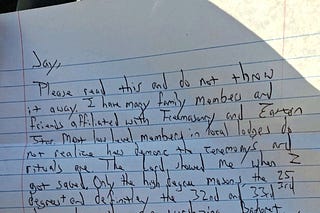 Jay,
Please read this and do not throw
it away. I have many family members and
friends affiliated with Freemasonry and Eastern
Star. Most low level members in local lodges do
not realize how demonic the ceremonys and
rituals are. The Lord showed me when I
got saved. Only the high degree masons, the 25
degrees and definitely the 32nd and 33rd